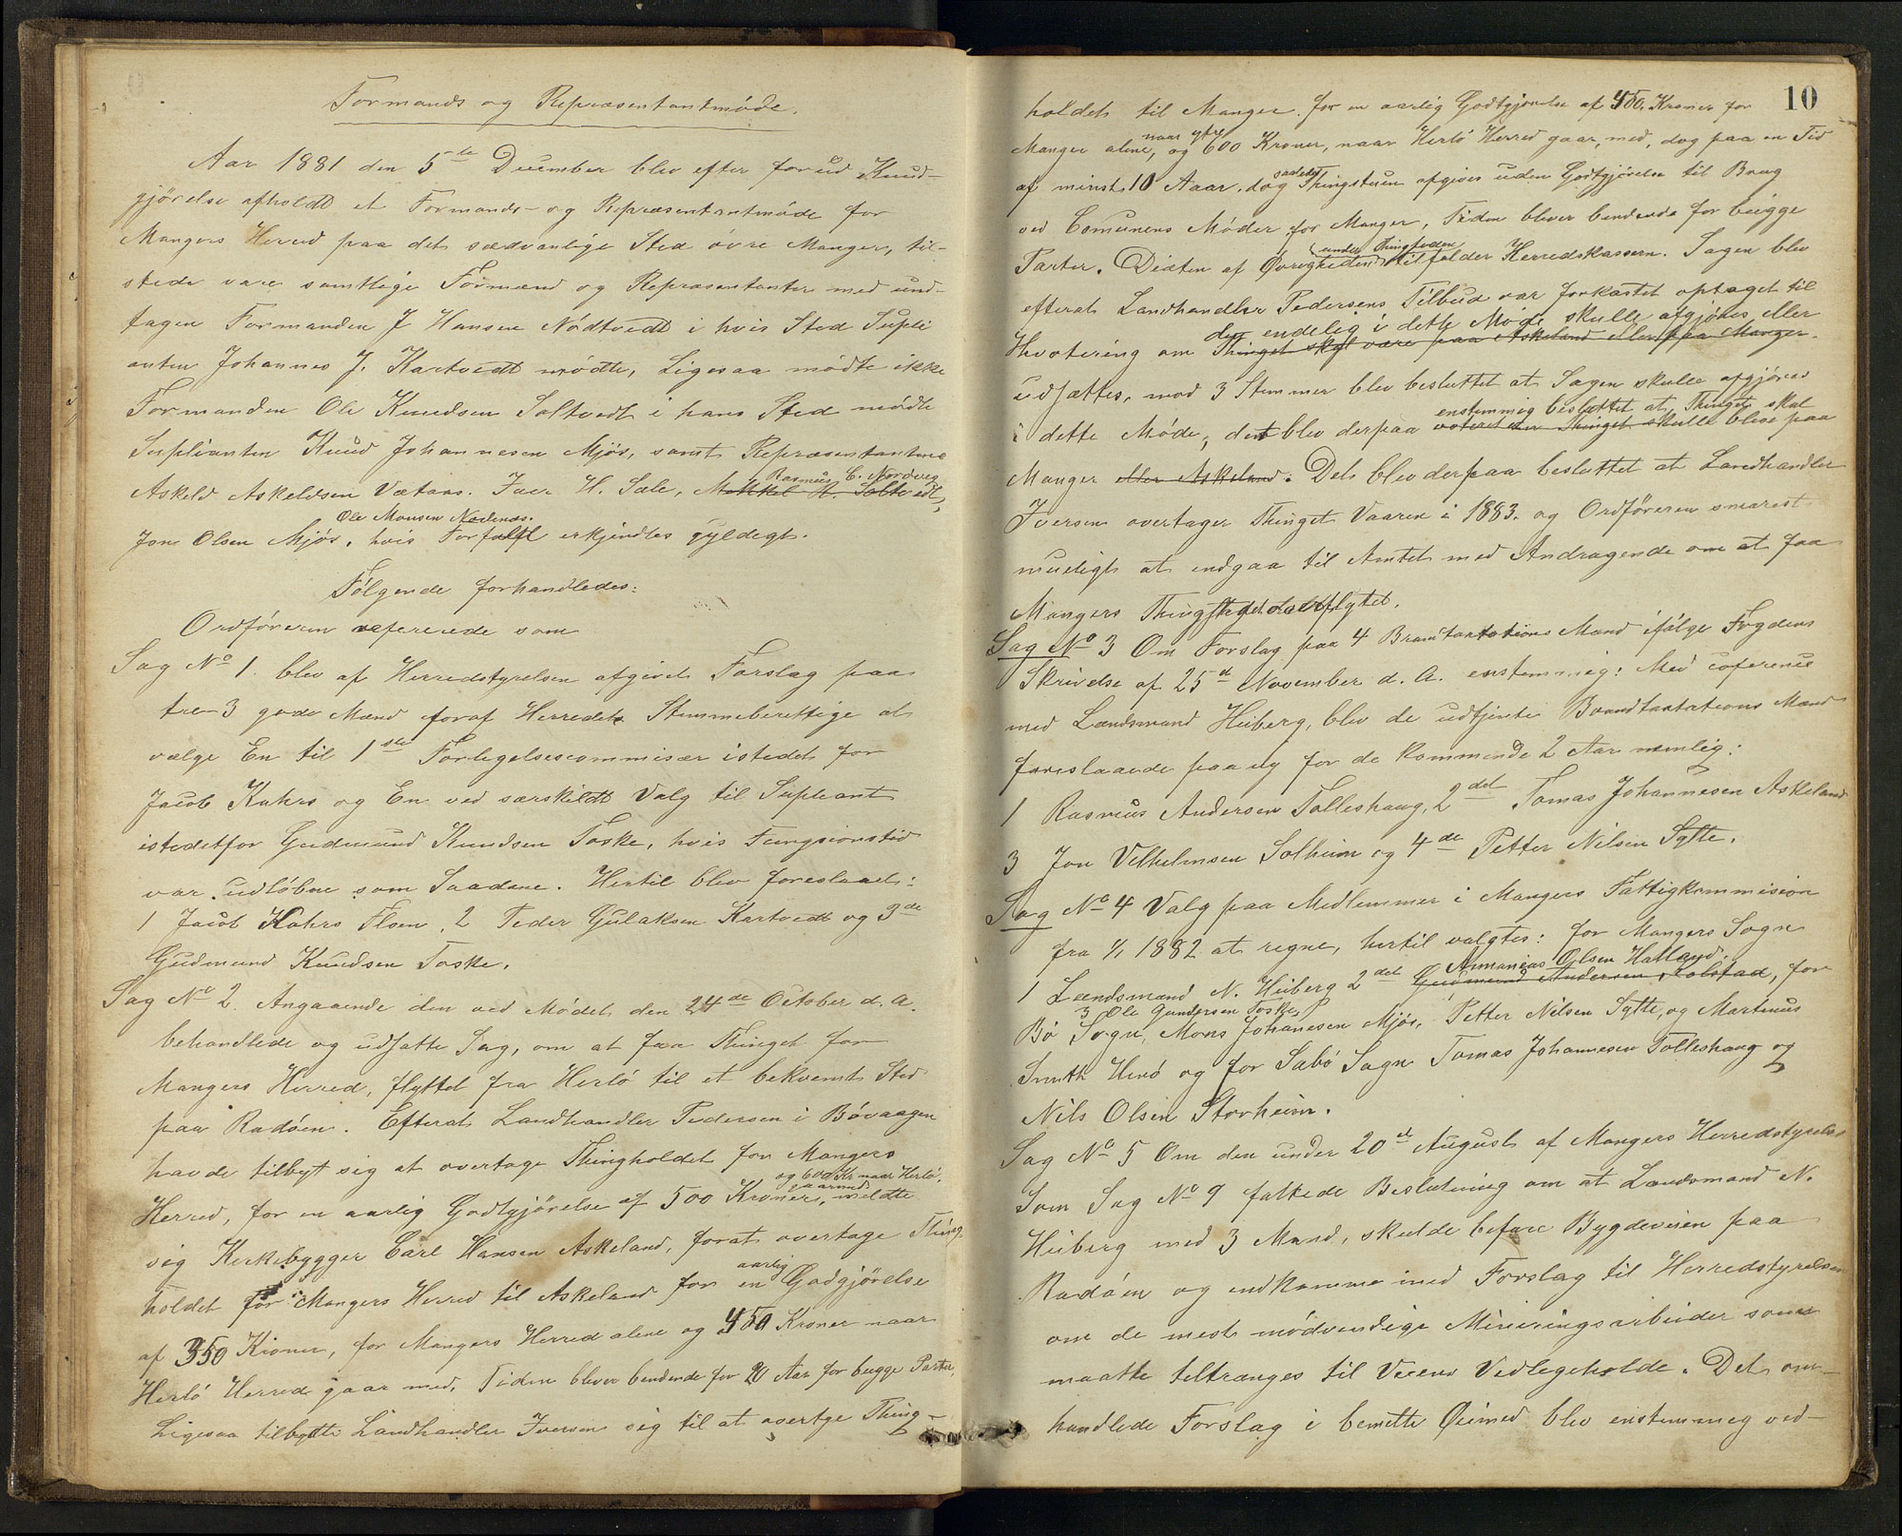 Formands og Repræsentantmöde.
Aar 1881 den 5te December blev efter forud Kund-
gjörelse afholdt et Formands- og Repræsentantmöde for
Mangers Herred paa det sædvanlige Sted övre Manger, til-
stede vare samtlige Formænd og Repræsentanter med und-
tagen Formanden J Hansen Nödtvedt i hvis Sted Supli
anten Johannes J. Kartvedt mödte, Ligesaa mödte ikke
Formanden Ole Knudsen Soltvedt i hans Sted mödte
Suplianten Knud Johannesen Mjös, samt Repræsentanterne
Rasmus C. Nordveg
Askeld Askeldsen Vetaas. Iver H. Sale, Mikkel M. Soltvedt,
Ole Monsen Nedenes.
Jon Olsen Mjös, hvis Forfald erkjendtes gyldigt.
Fölgende forhandledes:
Ordföreren refererede som
Sag No 1. blev af Herredstyrelsen afgivet Forslag paa
tre 3 gode Mænd foraf Herredets Stemmeberettige at
vælge En til 1ste Forligelsescommisær istedet for
Jacob Kahrs og En ved særskildt Valg til Supleant
istedetfor Gudmund Knudsen Toske, hvis Fungsionstid
var udlöbne som Saadane. Hertil blev foreslaaet:
1 Jacob Kahrs Floen, 2 Peder Gulaksen Kartvedt og 3de
Gudmund Knudsen Toske.
Sag No 2. Angaaende den ved Mödet den 24de October d. A.
behandlede og udsatte Sag, om at faa Thinget for
Mangers Herred, flyttet fra Herlö til et bekvemt Sted
paa Radöen. Efterat Landhandler Pedersen i Bövaagen
havde tilbyt sig at overtage Thingholdet for Mangers
og 600 Kr naar Herlö,
gaar med
Herred, for en aarlig Godtgjörelse af 500 Kroner, meldte
sig Kirkebygger Carl Hansen Askeland, forat overtage Thing-
aarlig
holdet for Mangers Herred til Askeland for en Godgjörelse
af 350 Kroner, for Mangers Herred alene og 450 Kroner naar
Herlö Herred gaar med, Tiden bliver bendende for 20 Aar for begge Parter,
Ligesaa tilbydte Landhandler Iversen sig til at overtge Thing-
10
holdet til Manger for en aarlig Godtgjörelse af 450 Kroner for
Manger alene, og 600 Kroner, naar Herlö Herred gaar, med, dog paa en Tid
saaledes
af minst 10 Aar, dog Thingstuen afgives uden Godtgjörelse til Brug
ved Comunens Möder for Manger, Tiden bliver bendende for beigge
under Thingtiden
Parter. Diæten af Övrigheden tilfalder Herredskassern. Sagen blev
efterat Landhandler Pedersens Tilbud var forkastet optaget til
den endelig i dette Möde skulle afgjöres eller
Hvotering om Thinget skal være paa Askeland eller paa Manger.
udsættes, mod 3 Stemmer blev besluttet at Sagen skulle afgjöres
enstemmig besluttet at Thinget skal
i dette Möde, det blev derpaa voteret om Thinget skulle blive paa
Manger eller Askeland. Det blev derpaa besluttet at Landhandler
Iversen overtager Thinget Vaaren i 1883. og Ordföreren snarest
mueligt at indgaa til Amtet med Andragende om at faa
Mangers Thingsted flyttet.
Sag No 3 Om Forslag paa 4 Brandtaxtations Mænd ifölge Fogdens
Skrivelse af 25d November d. A. enstemmig: Med coference
med Lændsmand Heiberg, blev de udtjente Brandtaxtations Mænd
foreslaaede paa ny for de kommende 2 Aar nemlig:
1 Rasmus Andersen Tolleshaug, 2det Tomas Johannesen Askeland
3 Jon Velhelmsen Solheim og 4de Petter Nilsen Sylte.
Sag No 4 Valg paa Medlemmer i Mangers Fattigkommision
fra 1/1 1882 at regne, hertil valgtes: for Mangers Sogn
Ananias Olsen Hatland.
1 Lændsmænd N. Heiberg 2det Gudmund Andersen Tolstad, for
3 Ole Gundersen Toske
Bö Sogn, Mons Johanesen Mjös, Petter Nilsen Sylte, og Martinus
Smith Herö og for Sæbö Sogn Tomas Johannesen Tolleshaug og
Nils Olsen Storheim.
Sag No 5 Om den under 20d August af Mangers Herredstyrelse
Som Sag No 9 fattede Beslutning om at Lændsmand N.
Heiberg med 3 Mænd, skulde befare Bygdeveien paa
Radöen og indkomme med Forslag til Herredstyrelsen
om de mest nödvendige Mineringsarbeider som
maatte tiltrænges til Veiens Vedligeholde. Det om-
handlede Forslag i bemelte Öiemed blev enstemmeg ved-